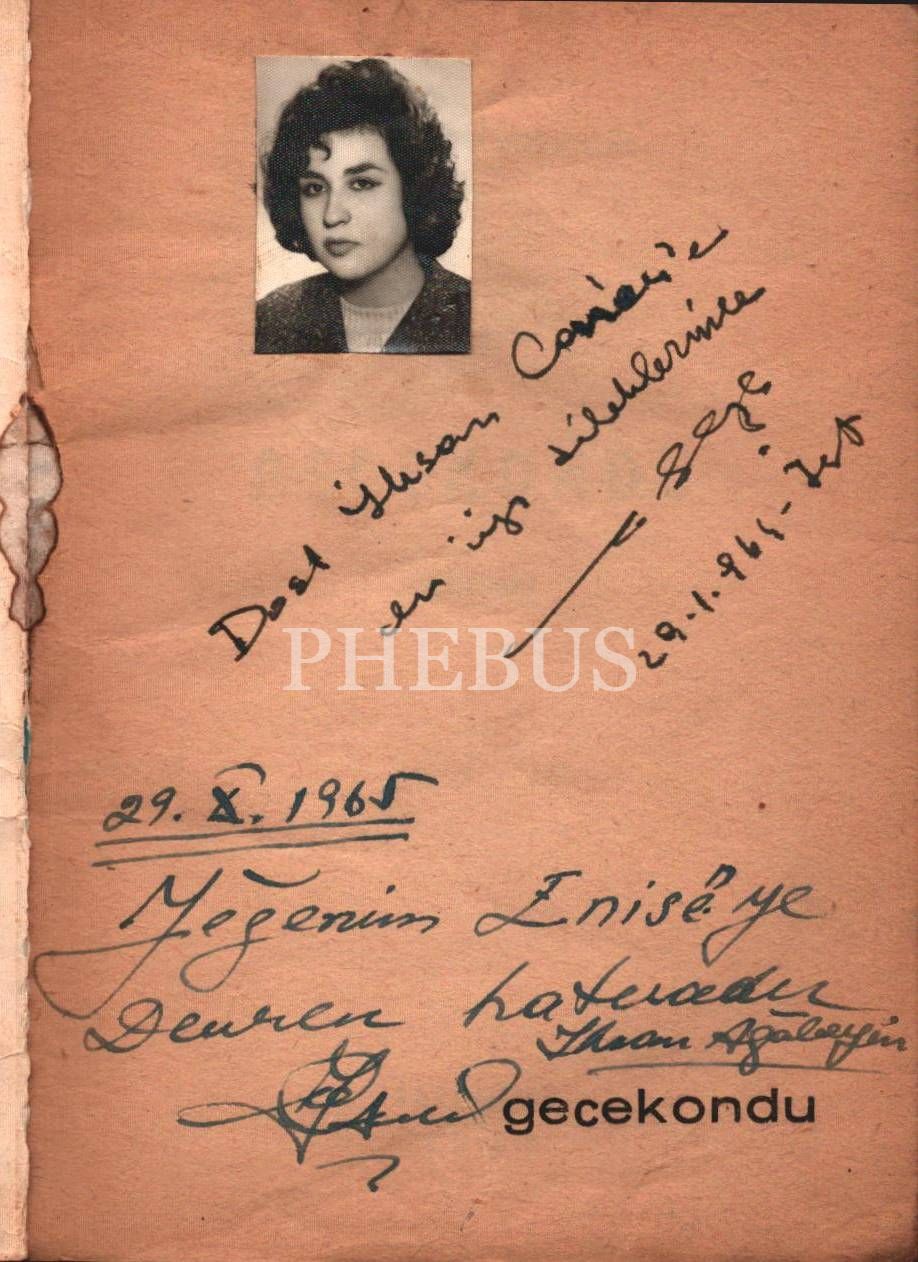 Dost İhsan
en iyi dileklerimle
29.1.965 - İst
PHEBUS
29.X.1965
Yeğenim Enise'ye
Devren hatıradır
İhsan Ağabeyin
gecekondu